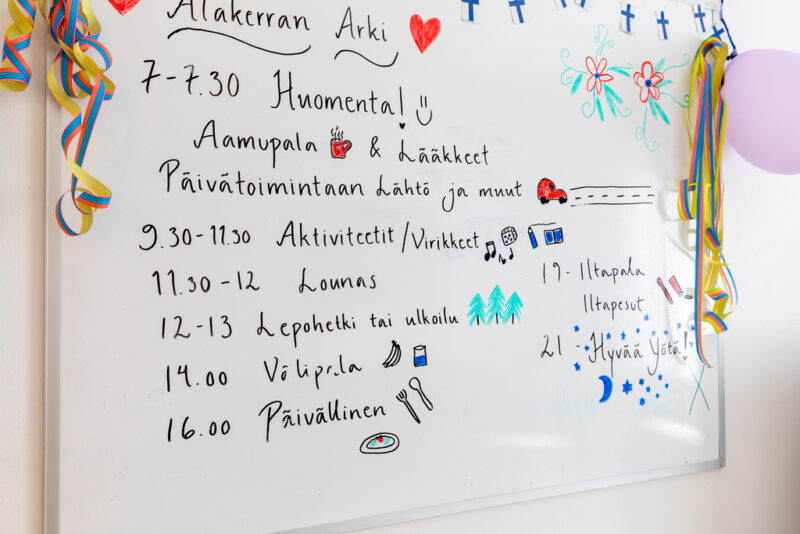 Alakerran Arki
7-7.30 Huomenta!
Aamupala & Lääkkeet
Päivätoimintaan Lähtö ja muut
9.30-11.30 Aktiviteetit/Virikkeet
11.30-12 Lounas
12-13 Lepohetki tai ulkoilu
14.00 Välipala
16.00 Päivällinen
19- Iltapala
Iltapesut
21 - Hyvää Yötä!